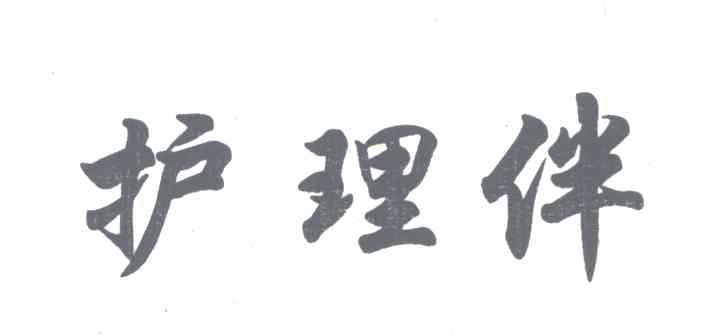 护理伴